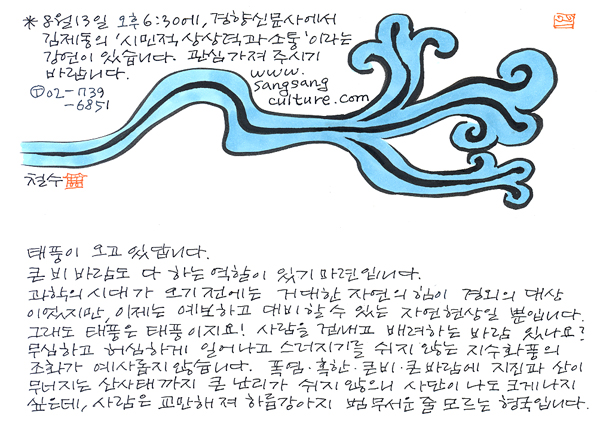 * 8월13일 오후6:30에, 경향신문사에서
김제동의 '시민적 상상력과 소통'이라는
강연이 있습니다. 관심 가져 주시기
바랍니다.
www.
sangsang
culture.com
T 02-739
-6851
철수
태풍이 오고 있답니다.
큰 비바람도 다 하는 역할이 있기 마련입니다.
과학의 시대가 오기 전에는 거대한 자연의 힘이 경외의 대상
이었지만, 이제는 예보하고 대비할 수 있는 자연현상일 뿐입니다.
그래도 태풍은 태풍이지요! 사람을 겁내고 배려하는 바람 있나요?
무심하고 허심하게 일어나고 스러지기를 쉬지 않는 지수화풍의
조화가 예사롭지 않습니다. 폭염·혹한·큰비·큰바람에 지진과 산이
무너지는 산사태까지 큰 난리가 쉬지 않으니 사단이 나도 크게 나지
싶은데, 사람은 교만해져 하룻강아지 범 무서운 줄 모르는 형국입니다.